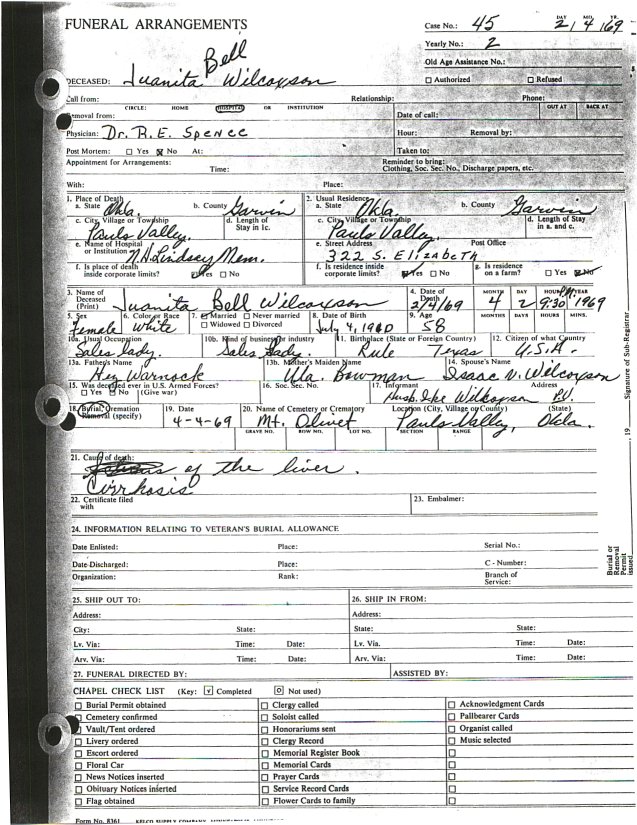 FUNERAL ARRANGEMENTS
Case No.: 45
DAY MO. YR.
2/4/69
Yearly No.: 2
Old Age Assistance No.:
DECEASED: Juanita Bell Wilcoxson
☐ Authorized ☐ Refused
Call from: Relationship: Phone:
CIRCLE: HOME HOSPITAL OR INSTITUTION
OUT AT BACK AT
Removal from: Date of call:
Physician: Dr. R.E. Spence Hour: Removal by:
Post Mortem: ☐ Yes ☒ No At: Taken to:
Appointment for Arrangements: Time:
Reminder to bring:
Clothing, Soc. Sec. No., Discharge papers, etc.
With: Place:
1. Place of Death
a. State Okla. b. County Garvin
c. City, Village or Township Pauls Valley. d. Length of Stay in 1c.
e. Name of Hospital or Institution Lindsey Mem.
f. Is place of death inside corporate limits? ☒ Yes ☐ No
2. Usual Residence
a. State Okla b. County Garvin
c. City, Village or Township Pauls Valley. d. Length of Stay in a. and c.
e. Street Address Post Office
322 S. Elizabeth
f. Is residence inside corporate limits? ☒ Yes ☐ No
g. Is residence on a farm? ☐ Yes ☒ No
3. Name of Deceased (Print) Juanita Bell Wilcoxson
4. Date of Death 2/4/69
MONTH DAY HOUR PM YEAR
4 2 9:30 1969
5. Sex Female
6. Color or Race White
7. ☒ Married ☐ Never married
☐ Widowed ☐ Divorced
8. Date of Birth July 4, 1910
9. Age 58
MONTHS DAYS HOURS MINS.
10a. Usual Occupation Sales lady.
10b. Kind of business or industry Sales Lady.
11. Birthplace (State or Foreign Country) Rule Texas
12. Citizen of what Country U.S.A.
13a. Father's Name Warnock
13b. Mother's Maiden Name Ula Bowman
14. Spouse's Name Isaac V. Wilcoxson
15. Was deceased ever in U.S. Armed Forces?
☐ Yes ☒ No (Give war)
16. Soc. Sec. No.
17. Informant Address
Husb. Ike Wilcoxson P.V.
18. Burial, Cremation Removal (specify)
19. Date 4-4-69
20. Name of Cemetery or Crematory Mt. Olivet
Location (City, Village or County) (State)
Pauls Valley, Okla.
GRAVE NO. ROW NO. LOT NO. SECTION RANGE
21. Cause of death:
of the liver.
Cirrhosis
22. Certificate filed with
23. Embalmer:
24. INFORMATION RELATING TO VETERAN'S BURIAL ALLOWANCE
Date Enlisted: Place: Serial No.:
Date Discharged: Place: C - Number:
Organization: Rank: Branch of Service:
25. SHIP OUT TO: 26. SHIP IN FROM:
Address: Address:
City: State: State: State:
Lv. Via: Time: Date: Lv. Via. Time: Date:
Arv. Via: Time: Date: Arv. Via: Time: Date:
27. FUNERAL DIRECTED BY: ASSISTED BY:
CHAPEL CHECK LIST (Key: ☑ Completed ☐ Not used)
☐ Burial Permit obtained ☐ Clergy called ☐ Acknowledgment Cards
☐ Cemetery confirmed ☐ Soloist called ☐ Pallbearer Cards
☐ Vault/Tent ordered ☐ Honorariums sent ☐ Organist called
☐ Livery ordered ☐ Clergy Record ☐ Music selected
☐ Escort ordered ☐ Memorial Register Book ☐
☐ Floral Car ☐ Memorial Cards ☐
☐ News Notices inserted ☐ Prayer Cards ☐
☐ Obituary Notices inserted ☐ Service Record Cards ☐
☐ Flag obtained ☐ Flower Cards to family ☐
Form No. 8361 KELCO SUPPLY COMPANY,
Signature of Sub-Registrar
, 19
Burial or Removal Permit issued